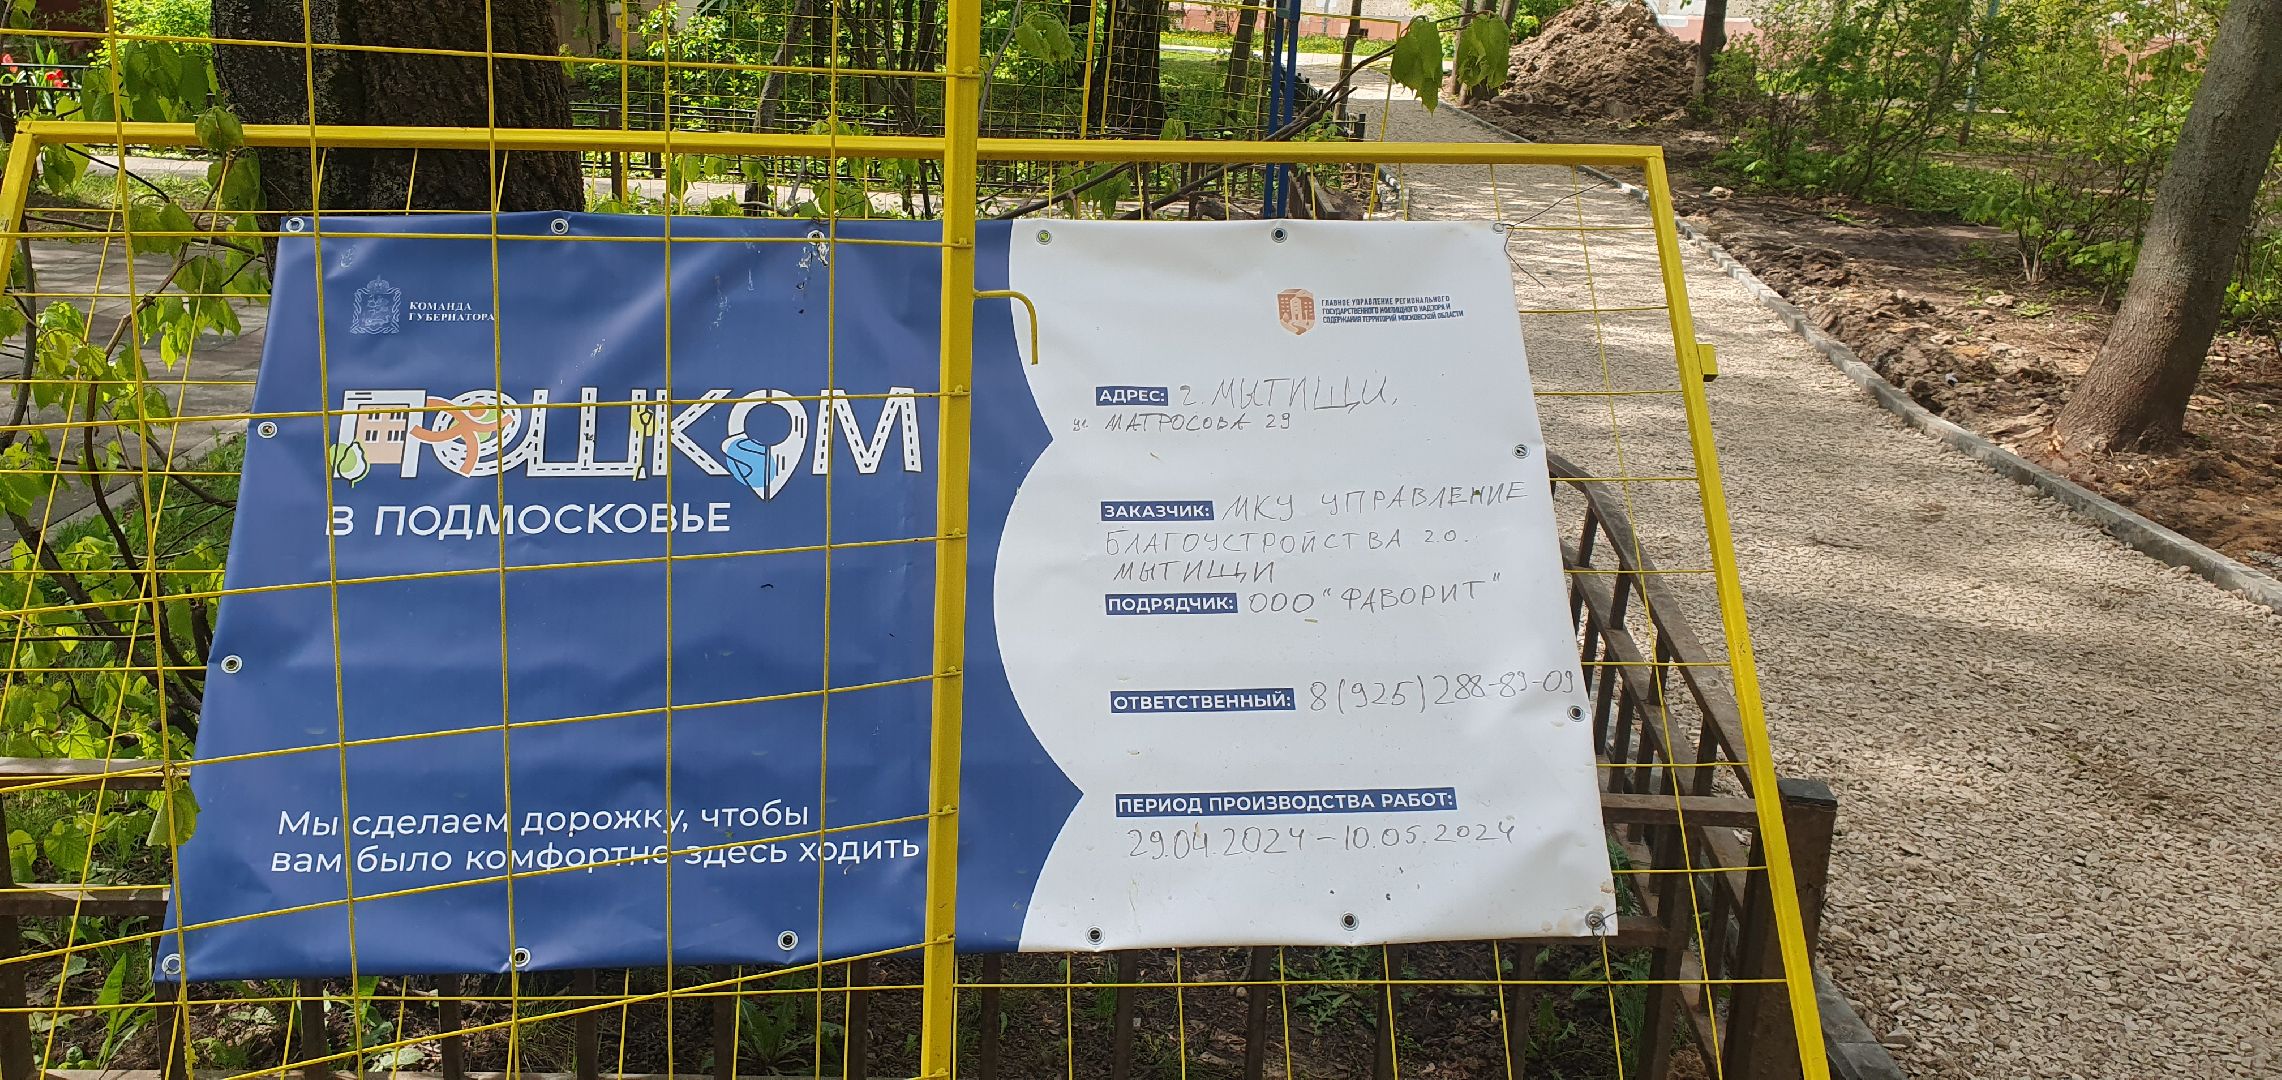 КОМАНДА
ГУБЕРНАТОРА
ПЕШКОМ
В ПОДМОСКОВЬЕ
Мы сделаем дорожку, чтобы
вам было комфортно здесь ходить
ГЛАВНОЕ УПРАВЛЕНИЕ РЕГИОНАЛЬНОГО
ГОСУДАРСТВЕННОГО ЖИЛИЩНОГО НАДЗОРА И
СОДЕРЖАНИЯ ТЕРРИТОРИЙ МОСКОВСКОЙ ОБЛАСТИ
АДРЕС: г. МЫТИЩИ,
ул. МАТРОСОВА 29
ЗАКАЗЧИК: МКУ УПРАВЛЕНИЕ
БЛАГОУСТРОЙСТВА г.о.
МЫТИЩИ
ПОДРЯДЧИК: ООО "ФАВОРИТ"
ОТВЕТСТВЕННЫЙ: 8(925)288-89-09
ПЕРИОД ПРОИЗВОДСТВА РАБОТ:
29.04.2024-10.05.2024